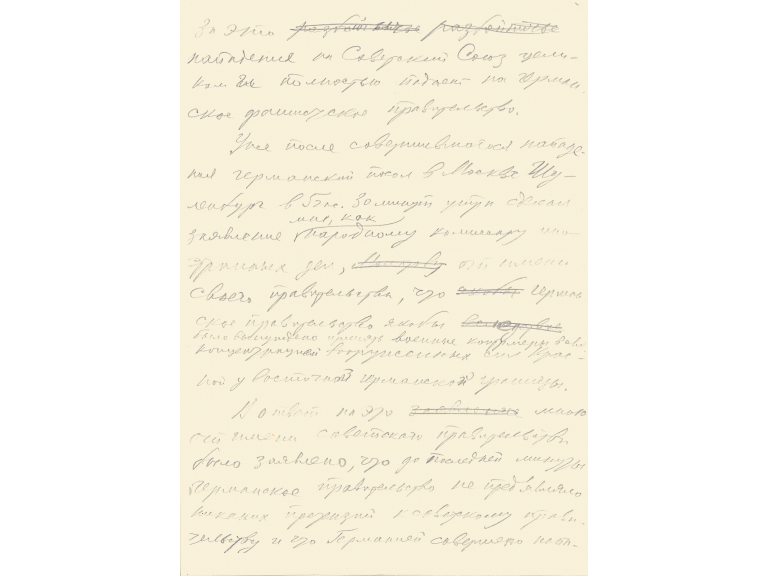 За это ~~разбойничье~~ ~~разбойничье~~
нападение на Советский Союз цели-
ком и полностью падает на герман-
ское фашистское правительство.
Уже после совершившегося нападе-
ния германский посол в Москве Шу-
ленбург в 5 час. 30 минут утра сделал
мне, как
заявление народному комиссару ино-
странных дел, ~~Молотову~~ от имени
своего правительства, что ~~якобы~~ Герман-
ское правительство якобы
было вынуждено принять военные контрмеры в связи
концентрацией вооруженных сил Крас-
ной у восточной германской границы.
В ответ на это ~~заявление~~ мною
от имени советского правительства
было заявлено, что до последней минуты
германское правительство не предъявляло
никаких претензий к советскому прави-
тельству и что Германией совершено напа-